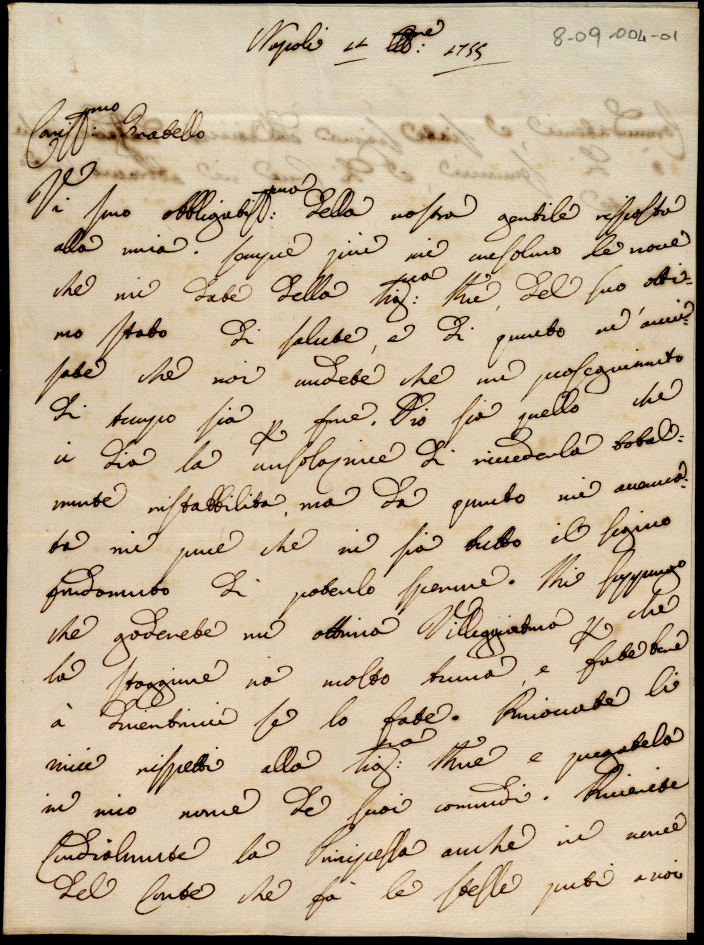 8-09-004-01
Napoli 11 1755
Cariss:mo Fratello
Vi sono obbligatiss:mo della vostra gentile risposta
alla mia. sempre più mi consolano le nove
che mi date della Sig:ra Me, del suo otti-
mo stato di salute, e di quanto mi
che voi che un proseguimento
di tempo sia p fine. Dio sia quello che
ci dia la consolazione di rivederla total:
mente ristabbilita, ma da quanto mi
ta mi pare che vi sia tutto il
fondamento di poterlo sperare. Mi suppongo
che goderete una ottima Villeggiatura p che
la staggione va molto buona, e fate bene
à divertirvi se lo fate. Rinovate li
miei rispetti alla Sig:ra Me e pregatela
in mio nome de suoi comandi. Riverite
Cordialmente la Principessa anche in nome
del Conte che fà le stesse parti a voi